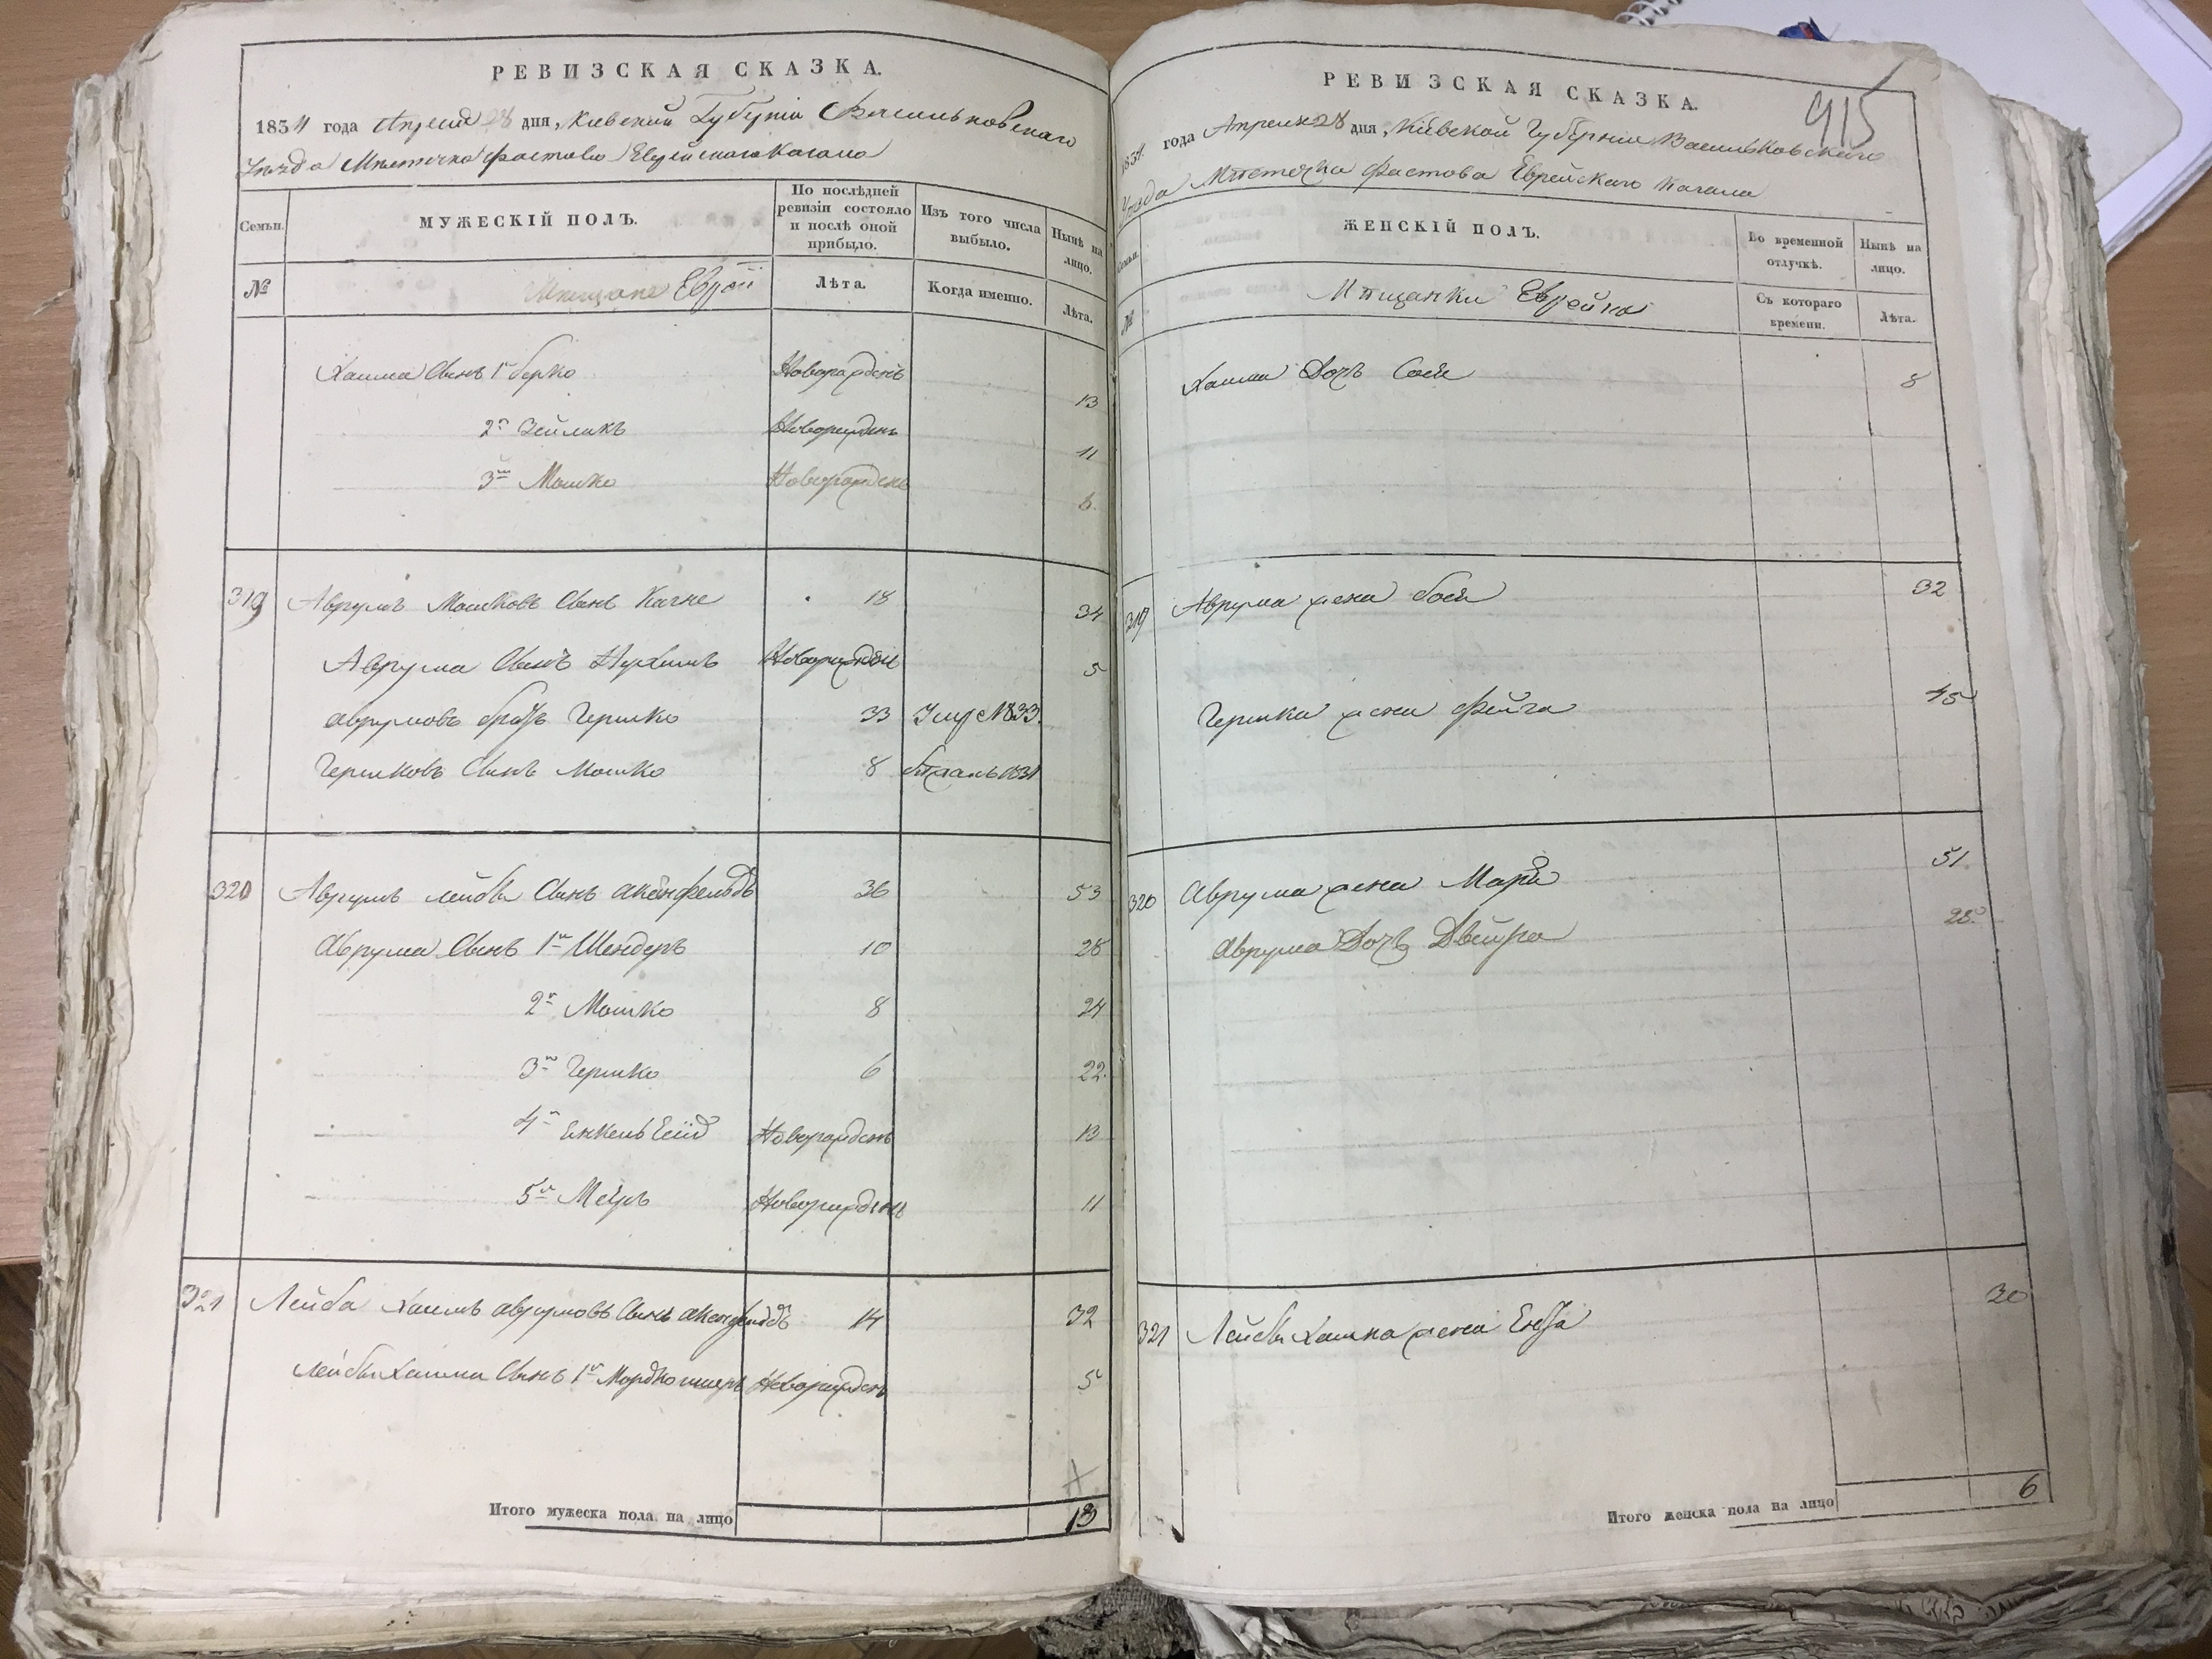 РЕВИЗСКАЯ СКАЗКА.
1834 года Апреля 28 дня, Киевской Губернiи Васильковскаго
Уѣзда Мѣстечка Фастова Еврейскаго Кагала
Семьи.
МУЖЕСКIЙ ПОЛЪ.
По послѣдней ревизiи состояло и послѣ оной прибыло.
Изъ того числа выбыло.
Нынѣ на лицо.
№
Мѣщане Евреи
Лѣта.
Когда именно.
Лѣта.
Хаима Сынъ 1й Берко Новорожденъ 13
2й Зейликъ Новорожденъ 11
3й Мошко Новорожденъ 8.
319 Аврумъ Мошковъ Сынъ 18 34
Аврума Сынъ Нухимъ Новорожден 5
Аврумовъ братъ Гершко 33 Умре 1833.
Гершковъ Сынъ Мошко 8 1831
320 Аврумъ Лейбы Сынъ 36 53
Аврума Сынъ 1й Шендеръ 10 28
2й Мошко 8 24
3й Гершко 6 22.
4й Новорожденъ 13
5й Мееръ Новорожденъ 11
321 Лейба Хаимъ Аврумовъ Сынъ 14 32
Лейбы Хаима Сынъ 1й Мордко Новорожденъ 5
Итого мужеска пола на лицо 13
915
РЕВИЗСКАЯ СКАЗКА.
1834 года Апреля 28 дня, Кiевской Губернiи Васильковскаго
Уѣзда Мѣстечка Фастова Еврейскаго Кагала
Семьи.
ЖЕНСКIЙ ПОЛЪ.
Во временной отлучкѣ.
Нынѣ на лицо.
№
Мѣщанки Еврейки
Съ котораго времени.
Лѣта.
Хаима Дочь Сося 8
319 Аврума жена Бося 32
Гершка жена Фейга 45
320 Аврума жена 51
Аврума Дочь Двейра 28.
321 Лейбы Хаима жена Ента 30
Итого женска пола на лицо 6